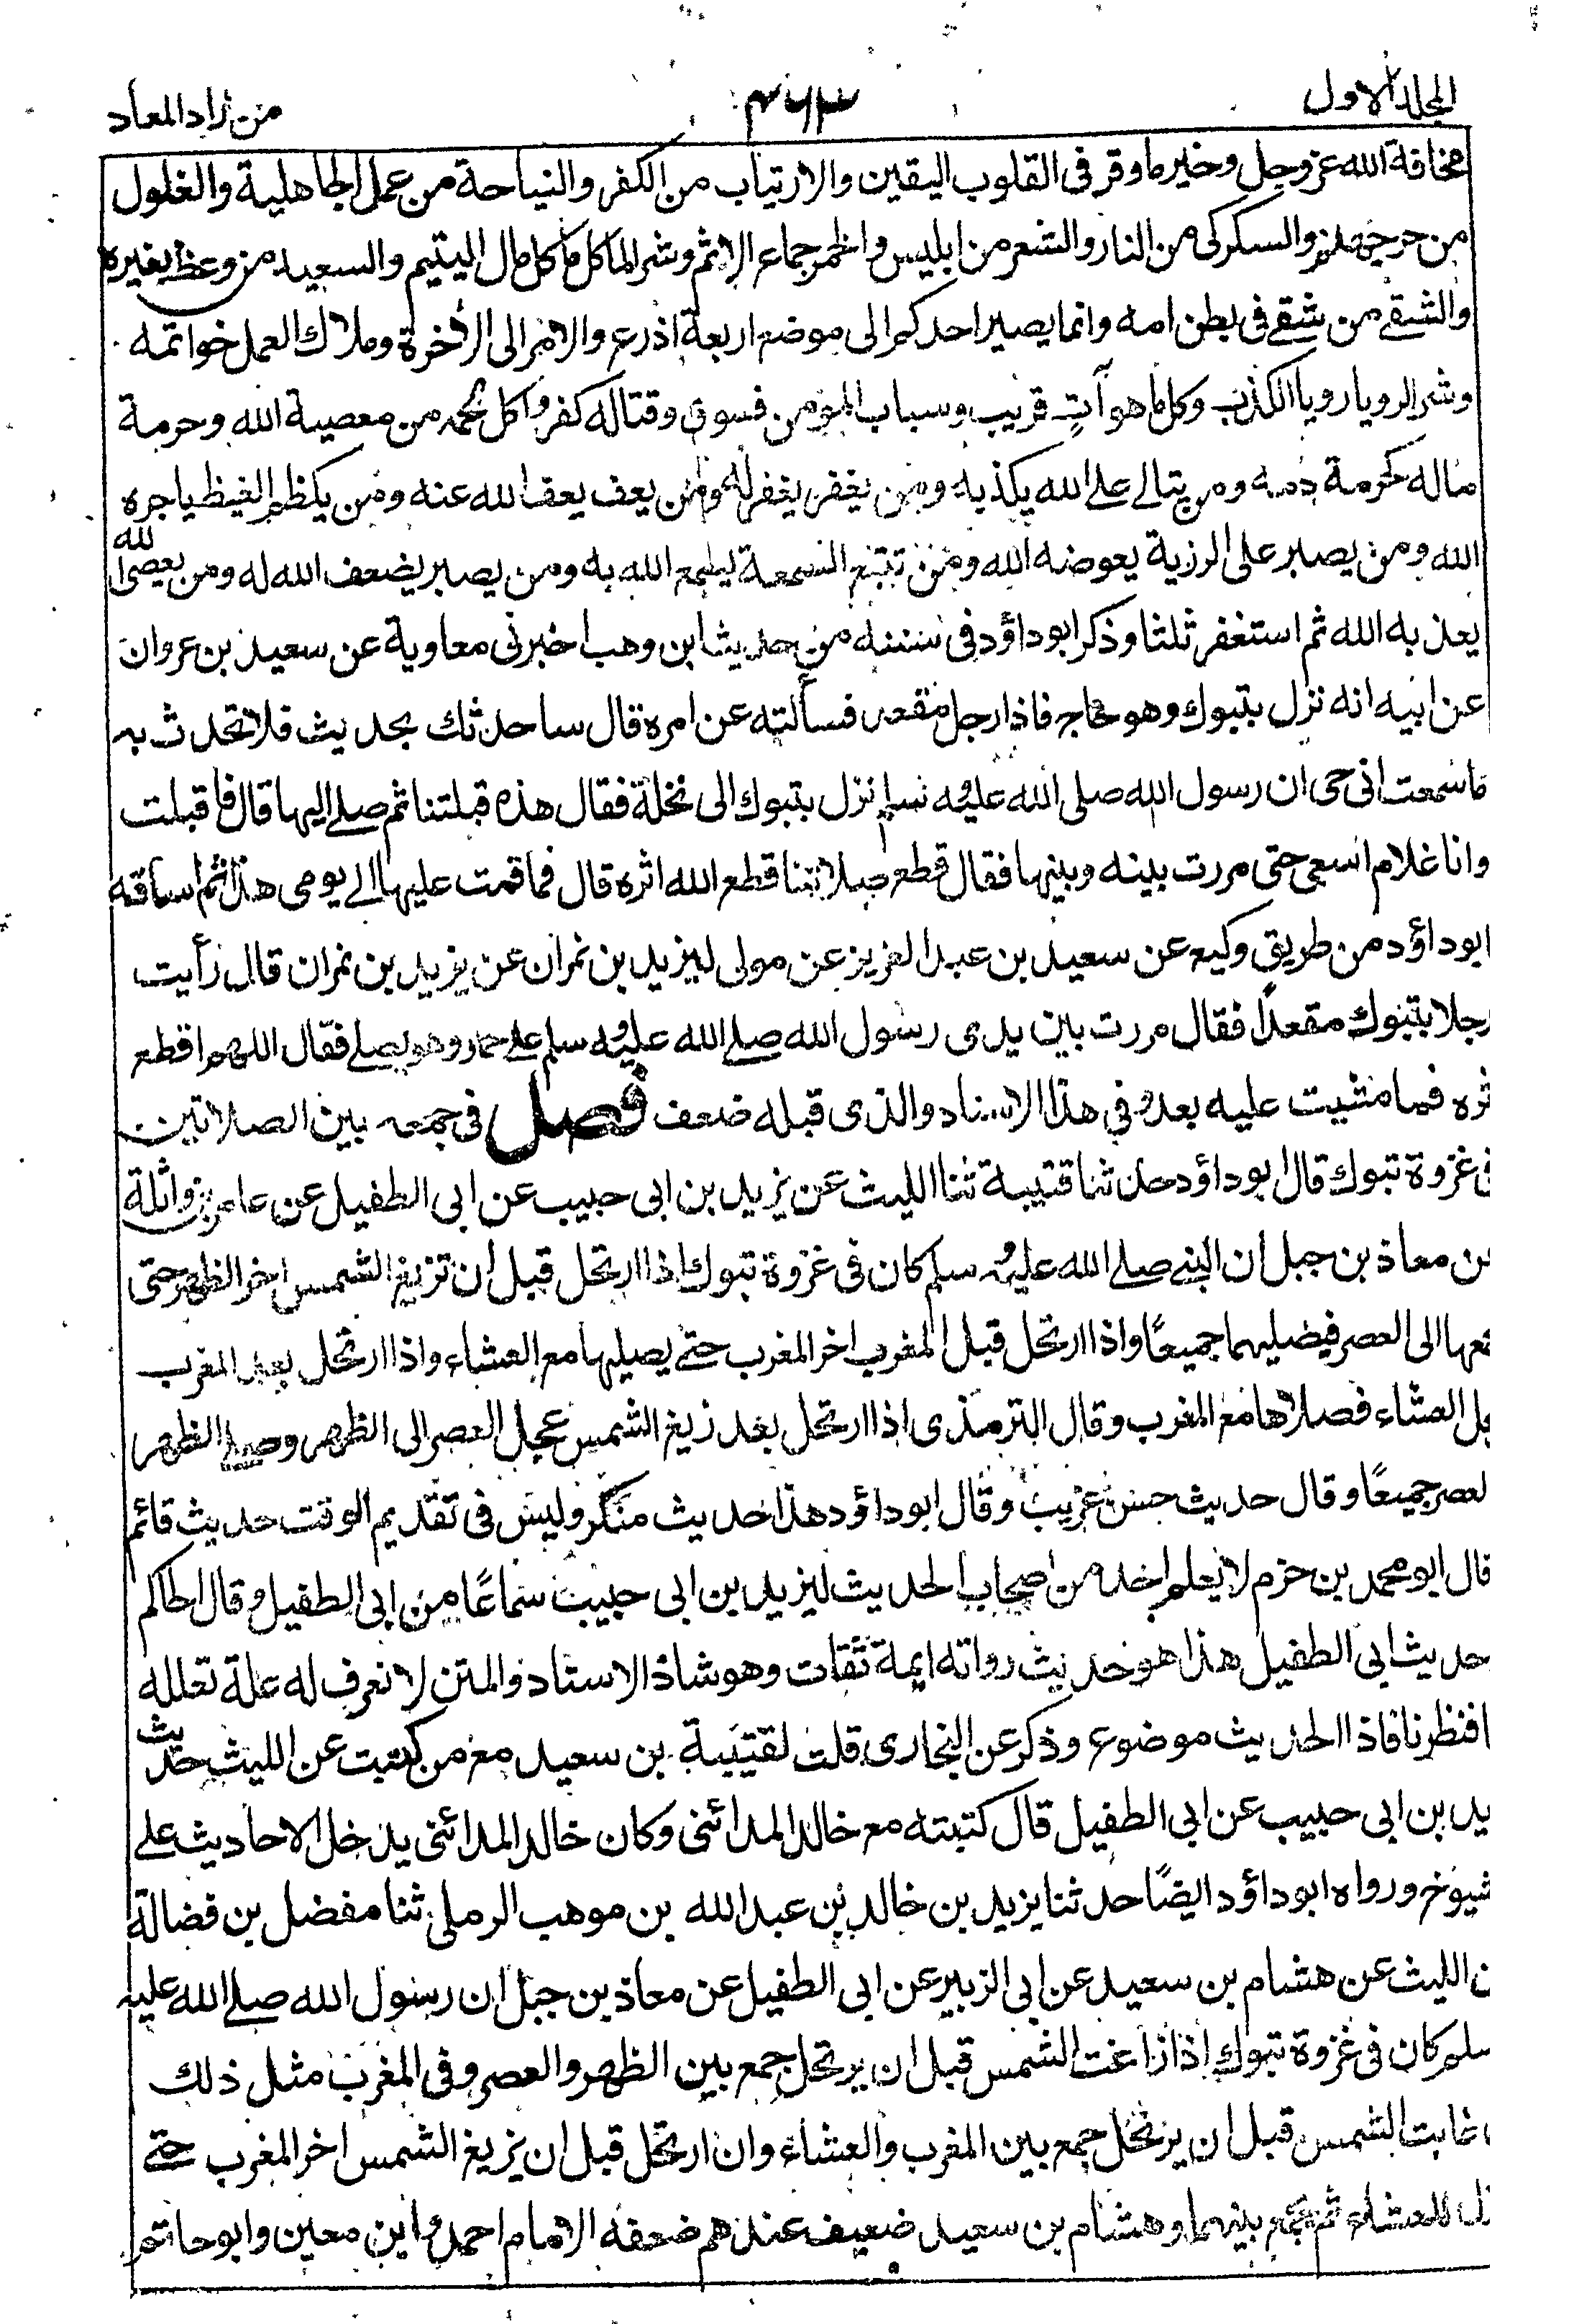 المجلد الاول
٤٦٣
من زاد المعاد
مخافة الله عز وجل وخير ما وقر فى القلوب اليقين والارتياب من الكفر والنياحة من عمل الجاهلية والغلول
من جهنم والسكر كى من النار والشعر من ابليس والخمر جماع الاثم وشر الماكل ماكل مال اليتيم والسعيد من وعظ بغيره
والشقے من شقے فى بطن امه وانما يصير احدكم الى موضع اربعة اذرع والامر الى الاخرة وملاك العمل خواتمه
وشر الرويا رويا الكذب وكل ما هو آتٍ قريب وسباب المؤمن فسوق وقتاله كفر واكل لحمه من معصية الله وحرمة
ماله كحرمة دمه ومن يتالى على الله يكذبه ومن يغفر يغفر له ومن يعف يعف الله عنه ومن يكظم الغيظ ياجره
الله ومن يصبر على الرزية يعوضه الله ومن تتبع السمعة يسمع الله به ومن يصبر يضعف الله له ومن يعصى الله
يعذبه الله ثم استغفر ثلثا وذكر ابوداؤد فى سننه من حديث ابن وهب اخبرنى معاوية عن سعيد بن عزوان
عن ابيه انه نزل بتبوك وهو حاج فاذا رجل مقعد فسألته عن امره قال ساحدثك بحديث فلا تحدث به
ما سمعت انى حى ان رسول الله صلى الله عليه وسلم نزل بتبوك الى نخلة فقال هذه قبلتنا ثم صلے اليها قال فاقبلت
وانا غلام اسعى حتى مررت بينه وبينها فقال قطع صلاتنا قطع الله اثره قال فما قمت عليها الى يومى هذا ثم ساقه
ابوداؤد من طريق وكيع عن سعيد بن عبد العزيز عن مولى ليزيد بن نمران عن يزيد بن نمران قال رأيت
رجلا بتبوك مقعدًا فقال مررت بين يدى رسول الله صلے الله عليه وسلم على حمار وهو يصلے فقال اللهم اقطع
ثره فما مشيت عليه بعد وفى هذا الاسناد والذى قبله ضعف فصل فى جمعه بين الصلاتين
فى غزوة تبوك قال ابوداؤد حدثنا قتيبة ثنا الليث عن يزيد بن ابى حبيب عن ابى الطفيل عن عامر بن واثلة
عن معاذ بن جبل ان النبے صلے الله عليه وسلم كان فى غزوة تبوك اذا ارتحل قبل ان تزيغ الشمس اخر الظهر حتى
معها الى العصر فيصليهما جميعًا واذا ارتحل قبل المغرب اخر المغرب حتے يصليها مع العشاء واذا ارتحل بعد المغرب
جل العشاء فصلاها مع المغرب وقال الترمذى اذا ارتحل بعد زيغ الشمس عجل العصر الى الظهر وصلے الظهر
لعصر جميعًا وقال حديث حسن غريب وقال ابوداؤد هذا حديث منكر وليس فى تقديم الوقت حديث قائم
قال ابومحمد بن حزم لا يعلم احد من اصحاب الحديث ليزيد بن ابى حبيب سماعًا من ابى الطفيل وقال الحاكم
حديث ابى الطفيل هذا هو حديث رواته ايمة ثقات وهو شاذ الاسناد والمتن لا نعرف له علة تعلله
افنظرنا فاذا الحديث موضوع وذكر عن البخارى قلت لقتيبة بن سعيد مع من كتبت عن الليث حديث
يد بن ابى حبيب عن ابى الطفيل قال كتبته مع خالد المدائنى وكان خالد المدائنى يدخل الاحاديث على
شيوخ ورواه ابوداؤد ايضًا حدثنا يزيد بن خالد بن عبد الله بن موهب الرملى ثنا مفضل بن فضالة
ن الليث عن هشام بن سعيد عن ابى الزبير عن ابى الطفيل عن معاذ بن جبل ان رسول الله صلے الله عليه
سلم كان فى غزوة تبوك اذا زاغت الشمس قبل ان يرتحل جمع بين الظهر والعصر وفى المغرب مثل ذلك
غابت الشمس قبل ان يرتحل جمع بين المغرب والعشاء وان ارتحل قبل ان يزيغ الشمس اخر المغرب حتے
زل للعشاء ثم يجمع بينهما وهشام بن سعيد ضعيف عندهم ضعفه الامام احمد وابن معين وابوحاتم